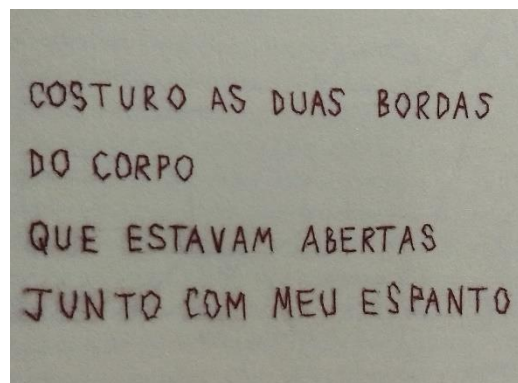 COSTURO AS DUAS BORDAS
DO CORPO
QUE ESTAVAM ABERTAS
JUNTO COM MEU ESPANTO